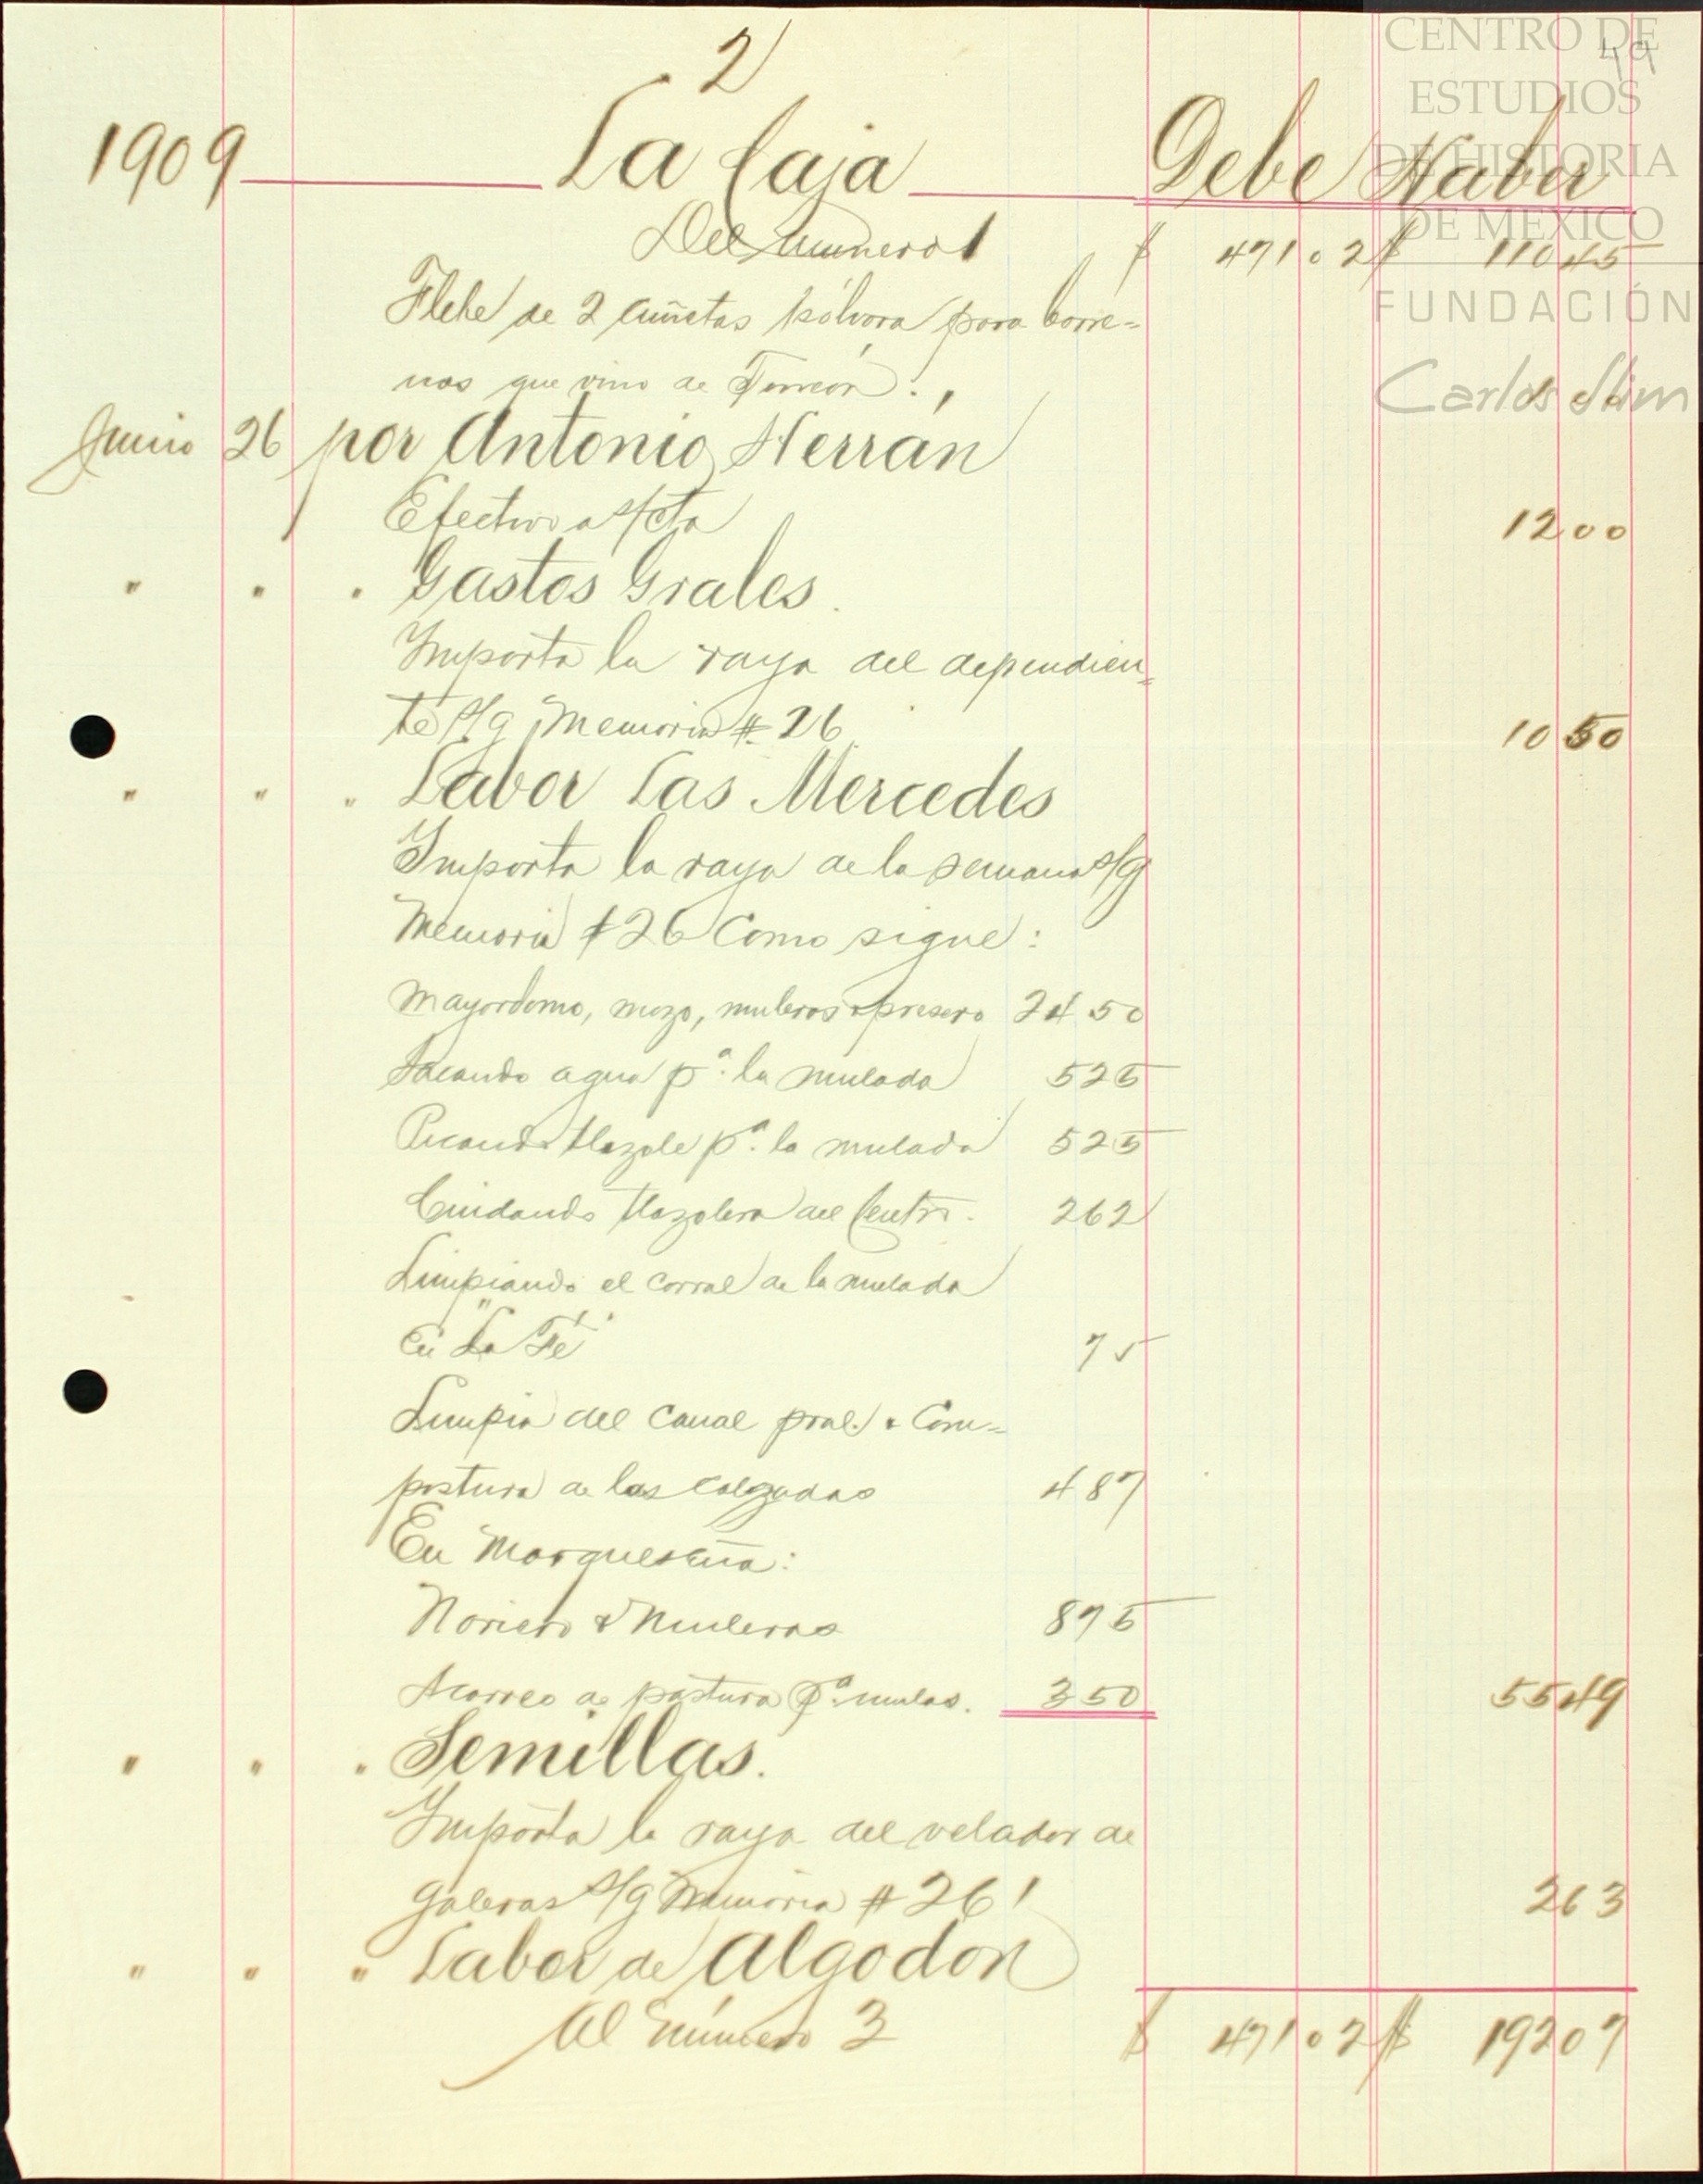 CENTRO DE
ESTUDIOS
DE HISTORIA
DE MEXICO
FUNDACIÓN
Carlos Slim
49
2
1909 La Caja Debe Haber
Del número 1 $ 471 02 $ 110 45
Flete de 2 cuñetas pólvora para barre=
nos que vino de Torreón. 1 00
Junio 26 por Antonio Herrán
Efectivo a s/cta 12 00
" " " Gastos Grales.
Importa la raya del dependien=
te s/g Memoria # 26 10 50
" " " Labor Las Mercedes
Importa la raya de la semana s/g
Memoria # 26 Como sigue:
Mayordomo, mozo, muleros & presero 24 50
Sacando agua pa. la mulada 5 25
Picando tlazole pa. la mulada 5 25
Cuidando tlazolera del Centro. 2 62
Limpiando el corral de la mulada
en "La Fé" 75
Limpia del canal pral. & Com=
postura de las calzadas 4 87
En Marqueseña:
Noriero & Muleros 8 75
Acarreo de pastura pa. mulas. 3 50 55 49
" " " Semillas.
Importa la raya del velador de
galeras s/g Memoria # 26 2 63
" " " Labor de Algodon
Al número 3 $ 471 02 $ 192 07